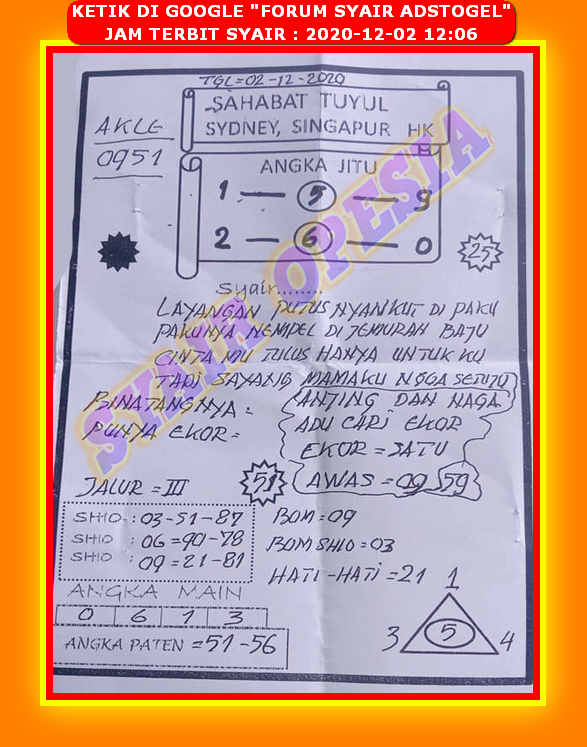 KETIK DI GOOGLE "FORUM SYAIR ADSTOGEL"
JAM TERBIT SYAIR : 2020-12-02 12:06
TGL=02-12-2020
SAHABAT TUYUL
SYDNEY, SINGAPUR HK
AKLE
0951
ANGKA JITU
1 — 5 — 9
2 — 6 — 0
25
Syair........
LAYANGAN PUTUS NYANKUT DI PAKU
PAKUNYA NEMPEL DI JEMURAN BAJU
CINTA MU TULUS HANYA UNTUK KU
TADI SAYANG MAMAKU NGGA SETUJU
BINATANGNYA =
ANTING DAN NAGA
PUNYA EKOR =
ADU CARI EKOR
EKOR = SATU
AWAS = 09 59
JALUR = III
51
SHIO : 03-51-87
SHIO : 06=90-78
SHIO : 09=21-81
BOM = 09
BOM SHIO = 03
HATI-HATI = 21
ANGKA MAIN
0 6 1 3
ANGKA PATEN = 51-56
1
3 5 4
SYAIR OPESIA